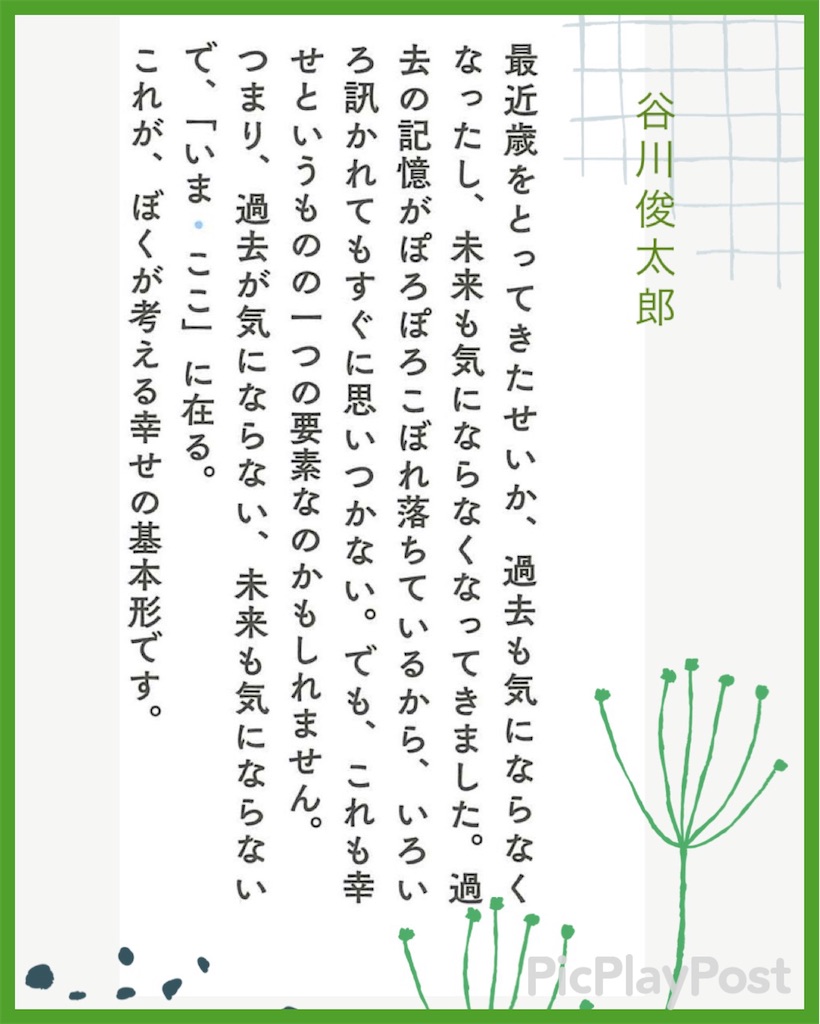 谷川俊太郎
最近歳をとってきたせいか、過去も気にならなく
なったし、未来も気にならなくなってきました。過
去の記憶がぽろぽろこぼれ落ちているから、いろい
ろ訊かれてもすぐに思いつかない。でも、これも幸
せというものの一つの要素なのかもしれません。
つまり、過去が気にならない、未来も気にならない
で、「いま・ここ」に在る。
これが、ぼくが考える幸せの基本形です。
PicPlayPost